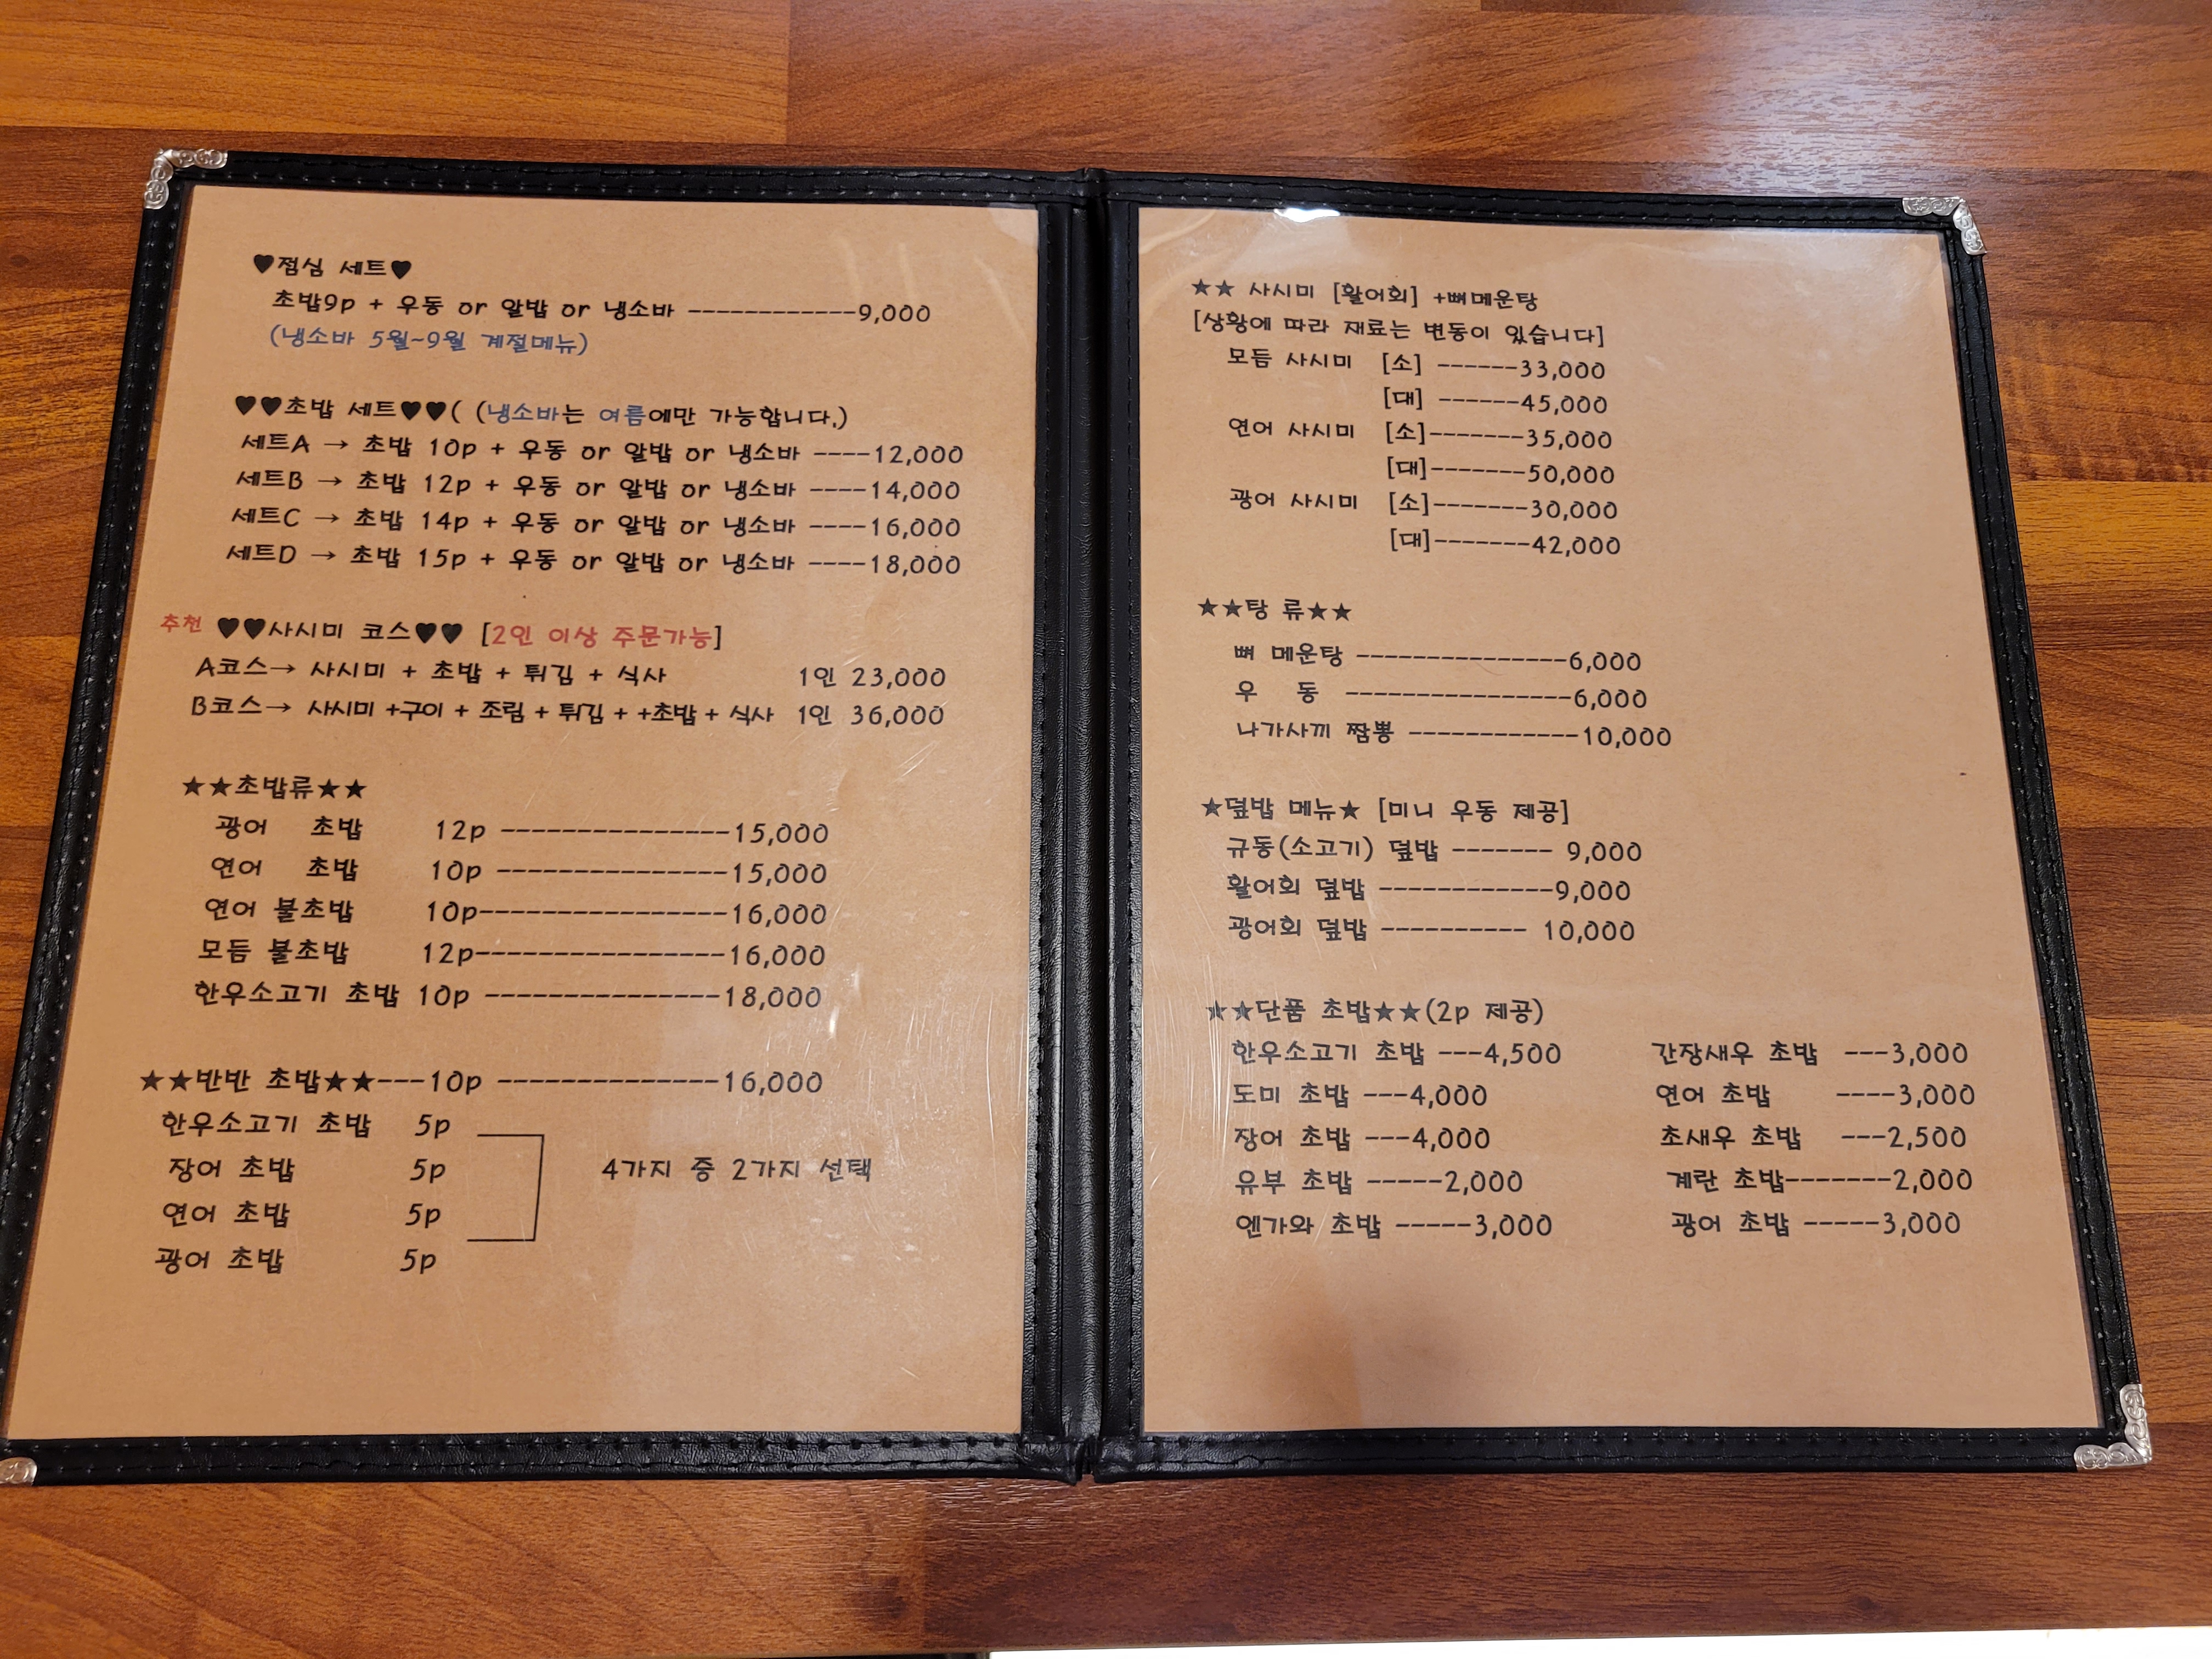 ♥점심 세트♥
초밥9p + 우동 or 알밥 or 냉소바 ------------9,000
(냉소바 5월~9월 계절메뉴)
♥♥초밥 세트♥♥( (냉소바는 여름에만 가능합니다.)
세트A → 초밥 10p + 우동 or 알밥 or 냉소바 ----12,000
세트B → 초밥 12p + 우동 or 알밥 or 냉소바 ----14,000
세트C → 초밥 14p + 우동 or 알밥 or 냉소바 ----16,000
세트D → 초밥 15p + 우동 or 알밥 or 냉소바 ----18,000
추천 ♥♥사시미 코스♥♥ [2인 이상 주문가능]
A코스→ 사시미 + 초밥 + 튀김 + 식사 1인 23,000
B코스→ 사시미 +구이 + 조림 + 튀김 + +초밥 + 식사 1인 36,000
★★초밥류★★
광어 초밥 12p ---------------15,000
연어 초밥 10p ---------------15,000
연어 불초밥 10p----------------16,000
모듬 불초밥 12p----------------16,000
한우소고기 초밥 10p ---------------18,000
★★반반 초밥★★---10p --------------16,000
한우소고기 초밥 5p
장어 초밥 5p 4가지 중 2가지 선택
연어 초밥 5p
광어 초밥 5p
★★ 사시미 [활어회] +뼈메운탕
[상황에 따라 재료는 변동이 있습니다]
모듬 사시미 [소] ------33,000
[대] ------45,000
연어 사시미 [소]-------35,000
[대]-------50,000
광어 사시미 [소]-------30,000
[대]-------42,000
★★탕 류★★
뼈 메운탕 ---------------6,000
우 동 ----------------6,000
나가사끼 짬뽕 ------------10,000
★덮밥 메뉴★ [미니 우동 제공]
규동(소고기) 덮밥 ------- 9,000
활어회 덮밥 ------------9,000
광어회 덮밥 ---------- 10,000
★★단품 초밥★★(2p 제공)
한우소고기 초밥 ---4,500 간장새우 초밥 ---3,000
도미 초밥 ---4,000 연어 초밥 ----3,000
장어 초밥 ---4,000 초새우 초밥 ---2,500
유부 초밥 -----2,000 계란 초밥-------2,000
엔가와 초밥 -----3,000 광어 초밥 -----3,000